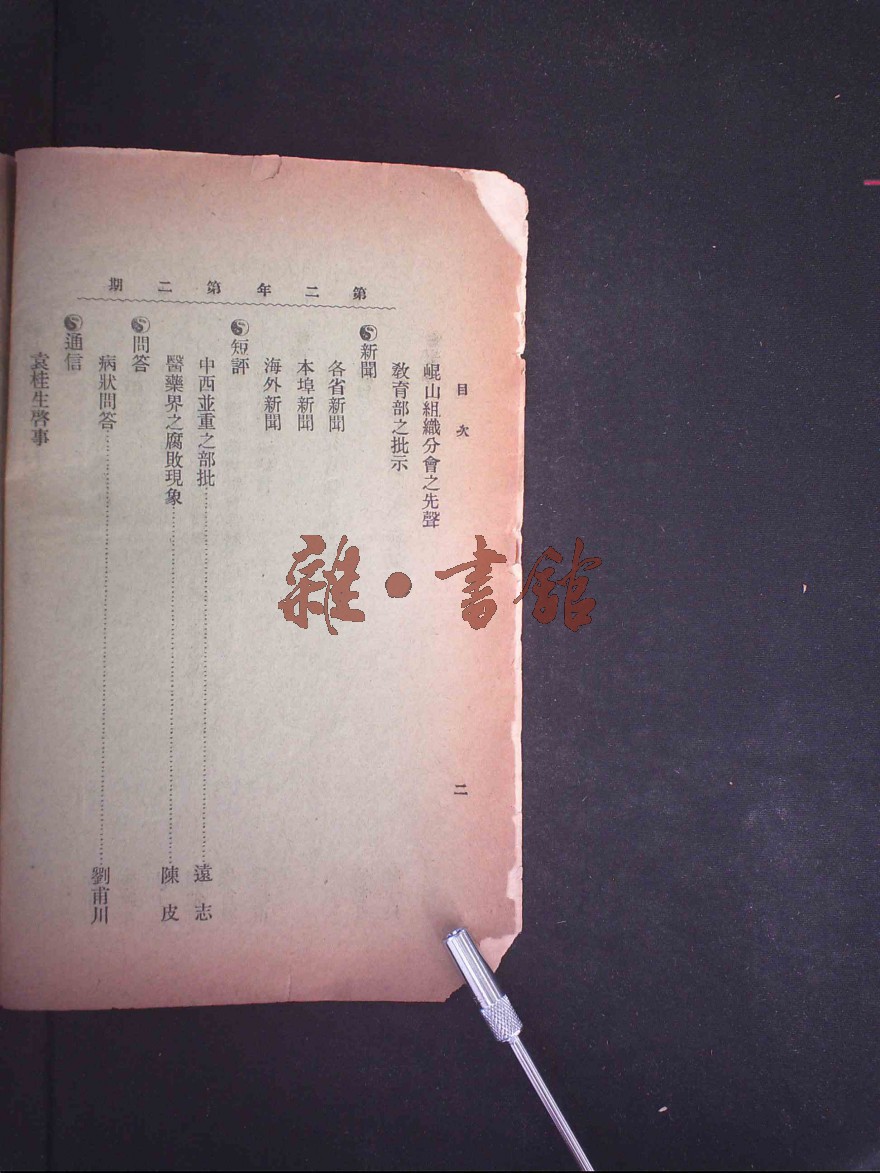 第二年第二期
目次
二
崐山組織分會之先聲
教育部之批示
新聞
各省新聞
本埠新聞
海外新聞
短評
中西並重之部批…遠志
醫藥界之腐敗現象…陳皮
問答
病狀問答…劉甫川
通信
袁桂生啓事
雜·書館